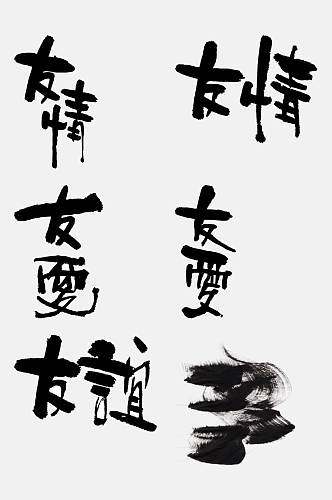 友情
友情
友愛
友愛
友誼